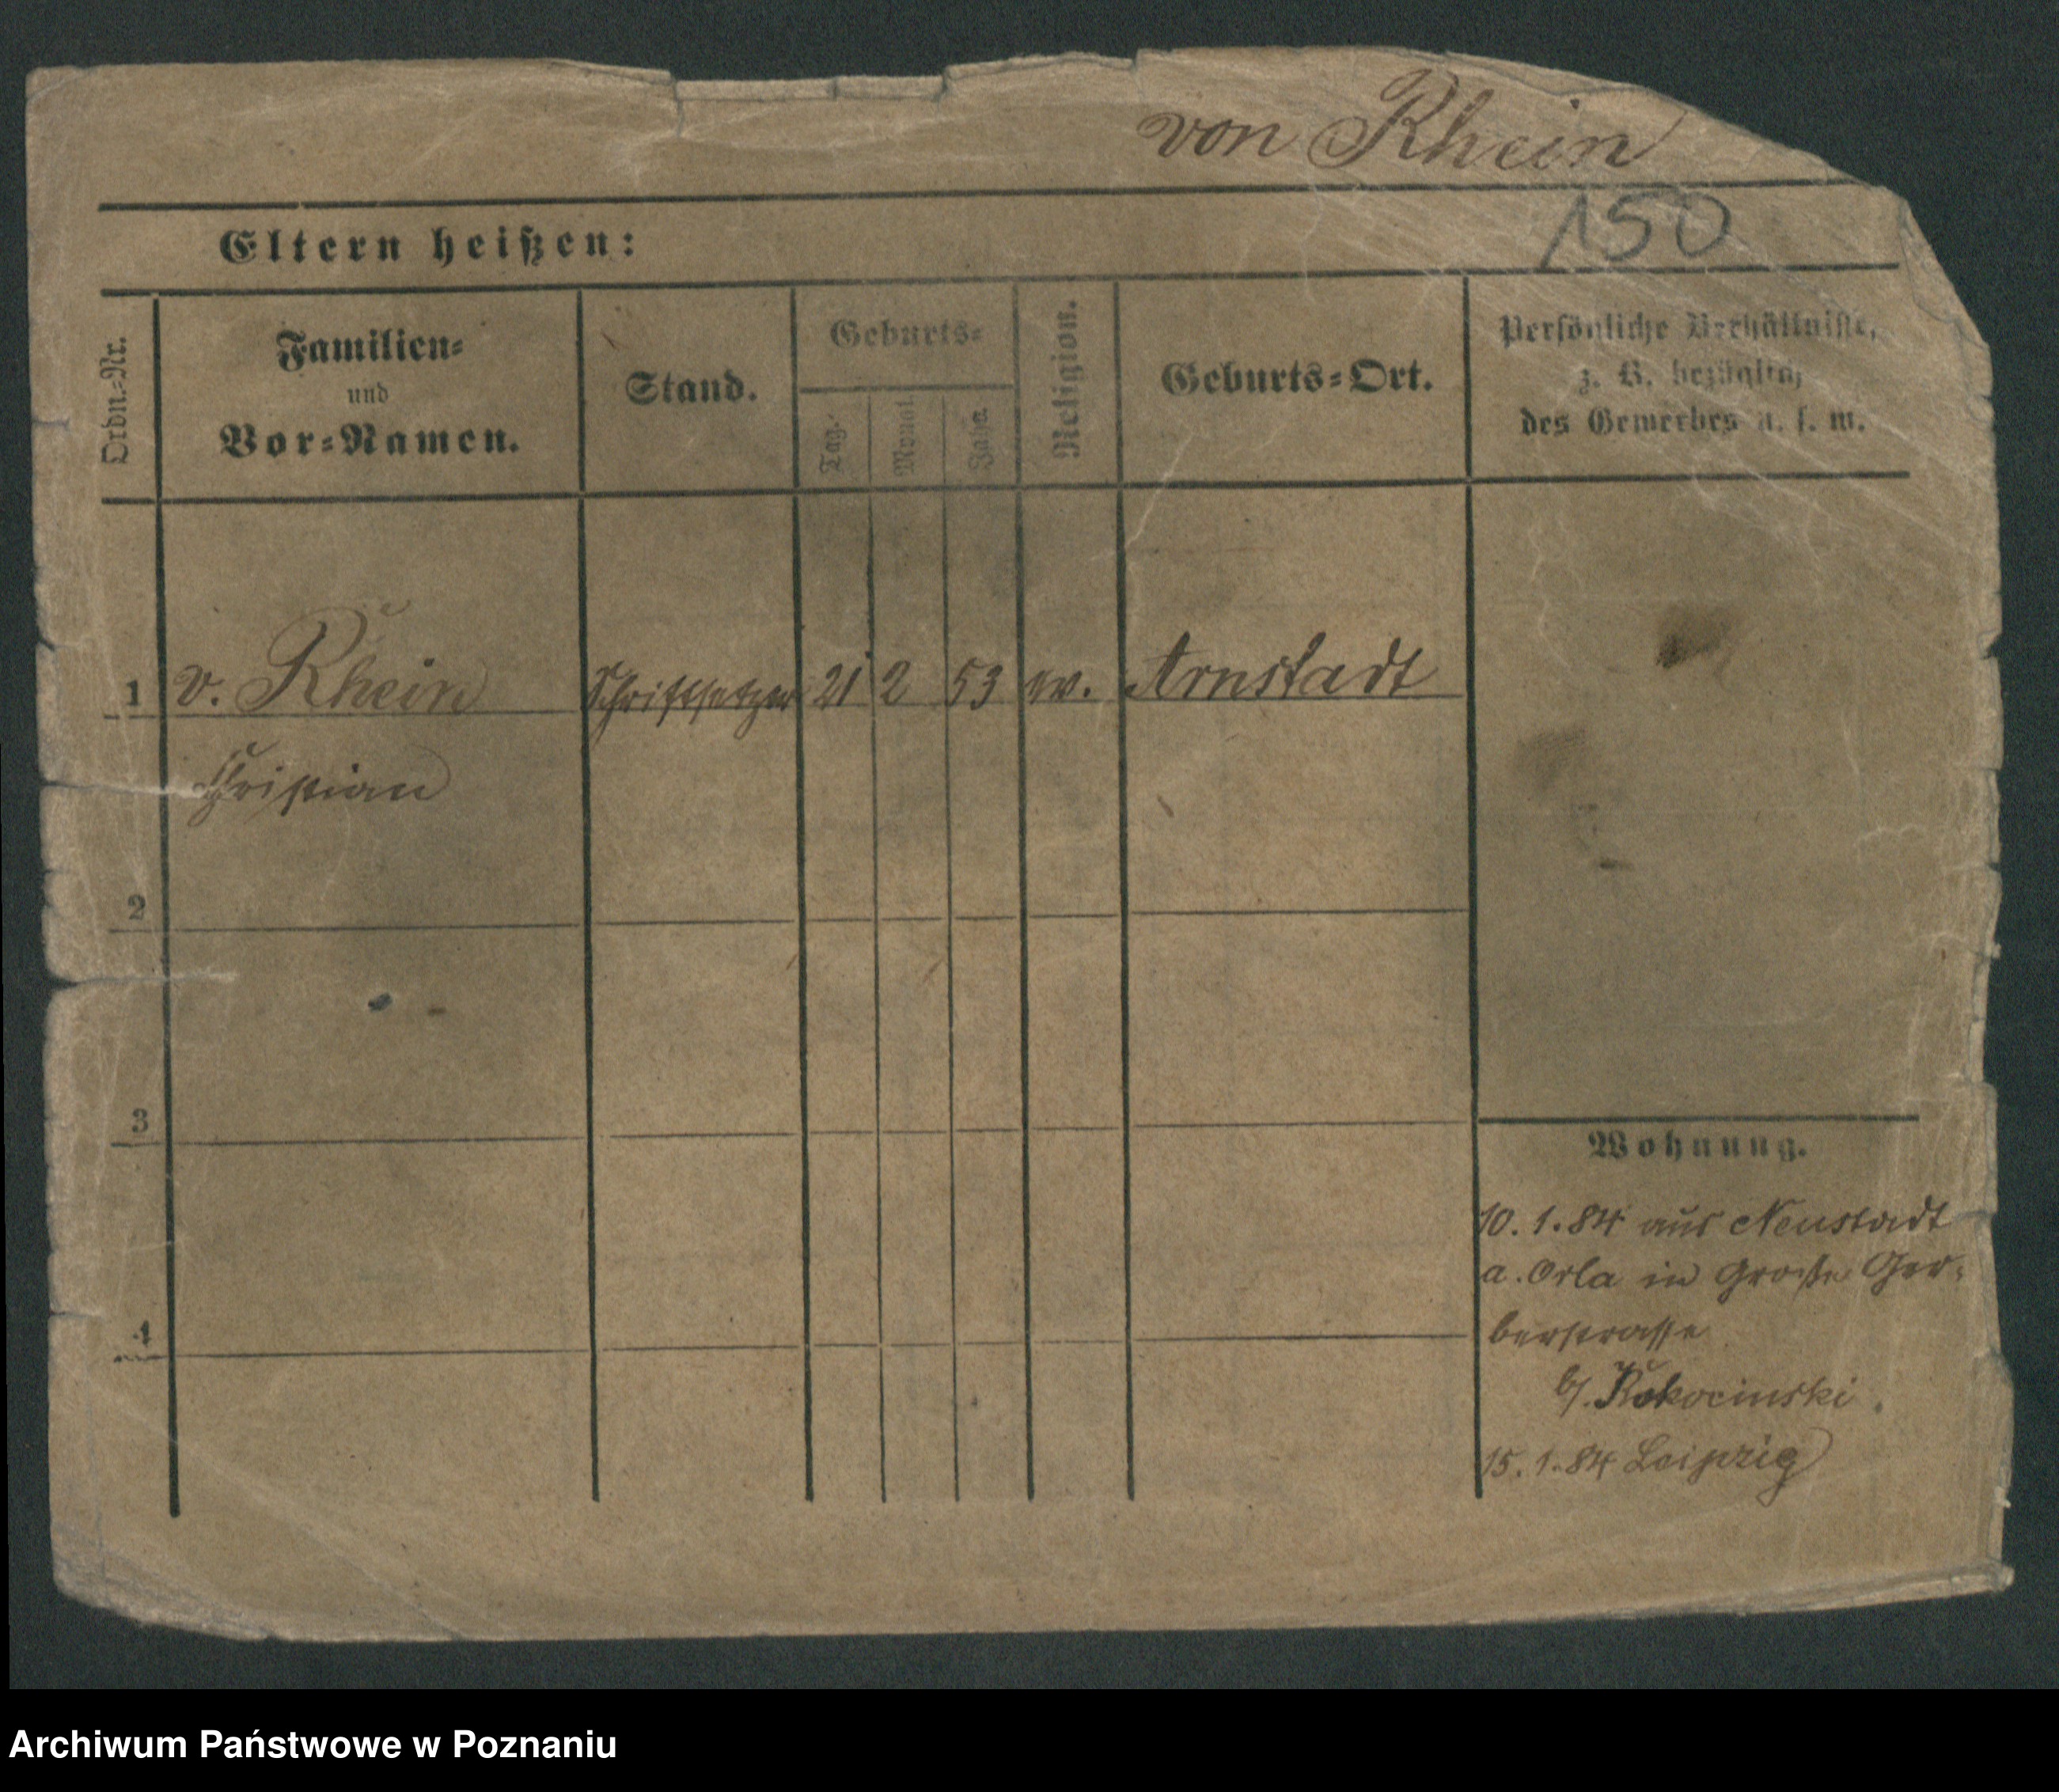 von Rhein
150
Eltern heißen:
Ordn.-Nr.
Familien-
und
Vor-Namen.
Stand.
Geburts-
Tag.
Monat.
Jahr
Religion.
Geburts-Ort.
Persönliche Verhältnisse,
z. B. bezüglich
des Gewerbes u. s. w.
1 v. Rhein Schriftsetzer 21 2 53 ev. Arnstadt
Christian
2
3
4
Wohnung.
10. 1. 84 aus Neustadt
a. Orla in Große Ger-
berstrasse
b/. Rokocinski.
15. 1. 84 Leipzig
Archiwum Państwowe w Poznaniu